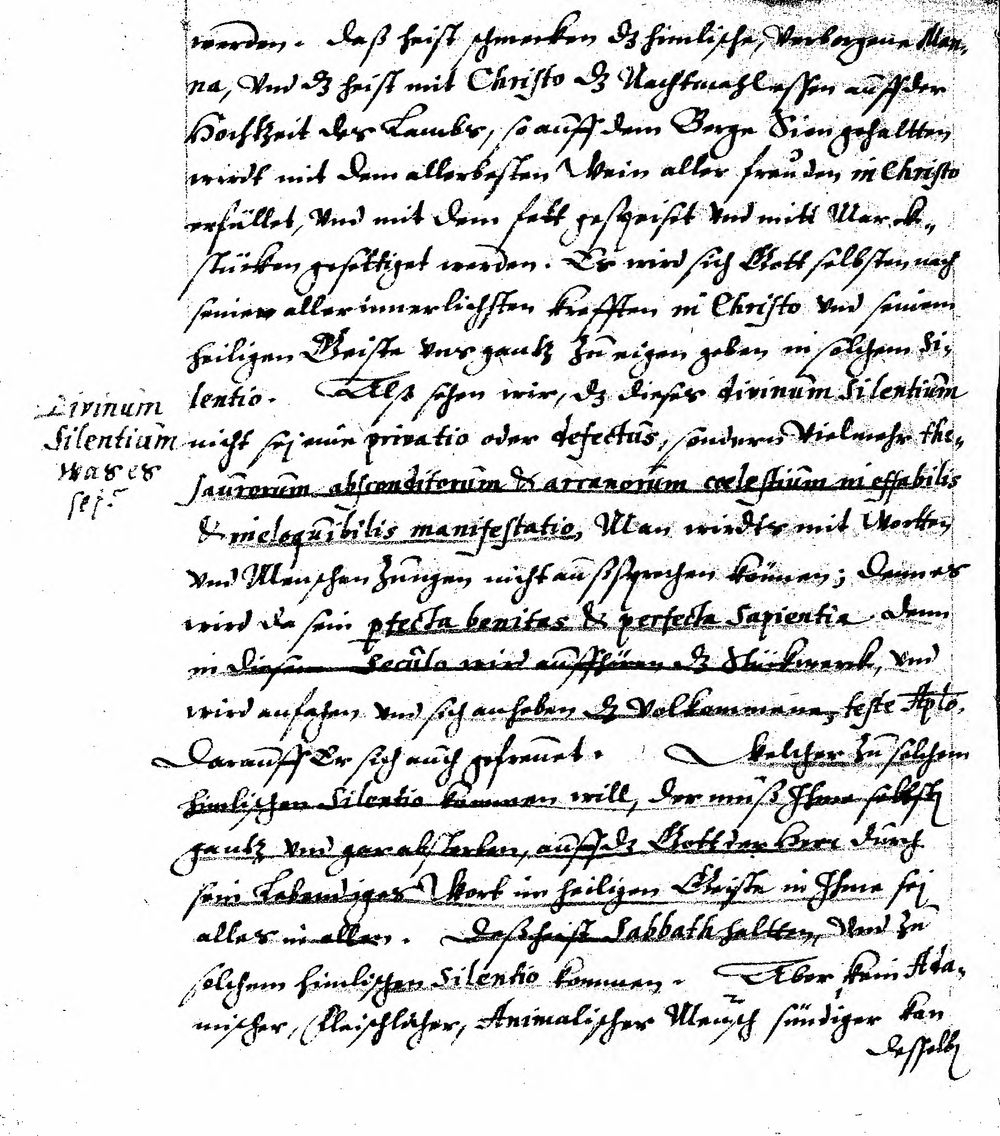 werden. Daß heist schmecken dz himlische, verborgene Man-
na, vnd dz heist mit Christo dz Nachtmahl essen auff der
Hochtzeit des Lambs, so auff dem Berge Sion gehaltten
wirdt mit dem allerbesten Wein aller freuden in Christo
erfüllet, vnd mit dem fett gespeiset vnd mitt Marck-
stücken gesettiget werden. Es wird sich Gott selbsten nach
seinen allerinnerlichsten krefften in Christo vnd seinem
heiligen Geiste vns gantz zu eigen geben in solchem Si-
lentio. Also sehen wir, dz dieses divinum Silentium
Divinum
Silentium
was es
sej?
nicht sej eine privatio oder defectus, sondern vielmehr the-
saurorum absconditorum & arcanorum coelestium ineffabilis
& ineloquibilis manifestatio, Man wirdts mit Wortten
vnd Menschen Zungen nicht außsprechen können; denn es
wird da sein pfecta bonitas & perfecta Sapientia. Denn
in diesem Seculo wird auffhören dz Stückwerck, vnd
wird anfahen vnd sich anheben dz Volkommene, teste Aplo.
Darauff Er sich auch gefreuet. Welcher zu solchem
himlischen Silentio kommen will, der muß Ihme selbst
gantz vnd gar absterben, auff dz Gott der Herr durch
sein Lebendiges Wort im heiligen Geiste in Ihme sej
alles in allen. Daß heist Sabbath haltten, vnd zu
solchem himlischen Silentio kommen. Aber kein Ada-
mischer, fleischlicher, Animalischer Mensch sündiger kan
desselb